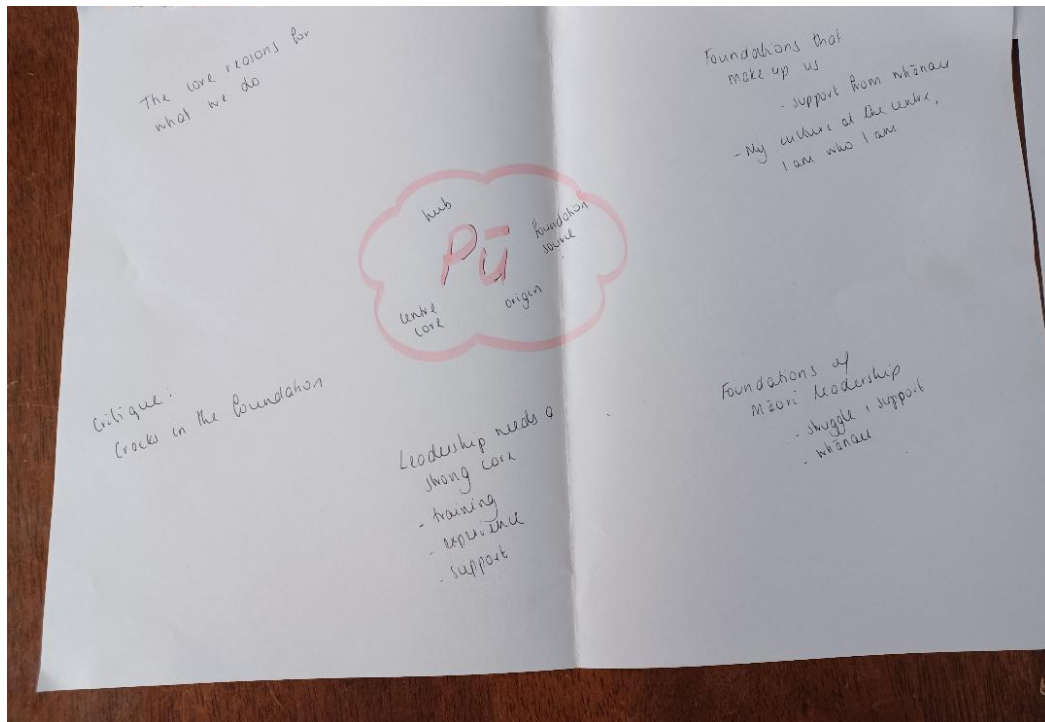 The core reasons for
what we do
Foundations that
make up us
- support from whānau
- My culture at the centre,
I am who I am
hub
Pū
foundation
source
centre
core
origin
Critique:
Cracks in the foundation
Leadership needs a
strong core
- training
- experience
- support
Foundations of
Māori leadership
- struggle, support
- whānau